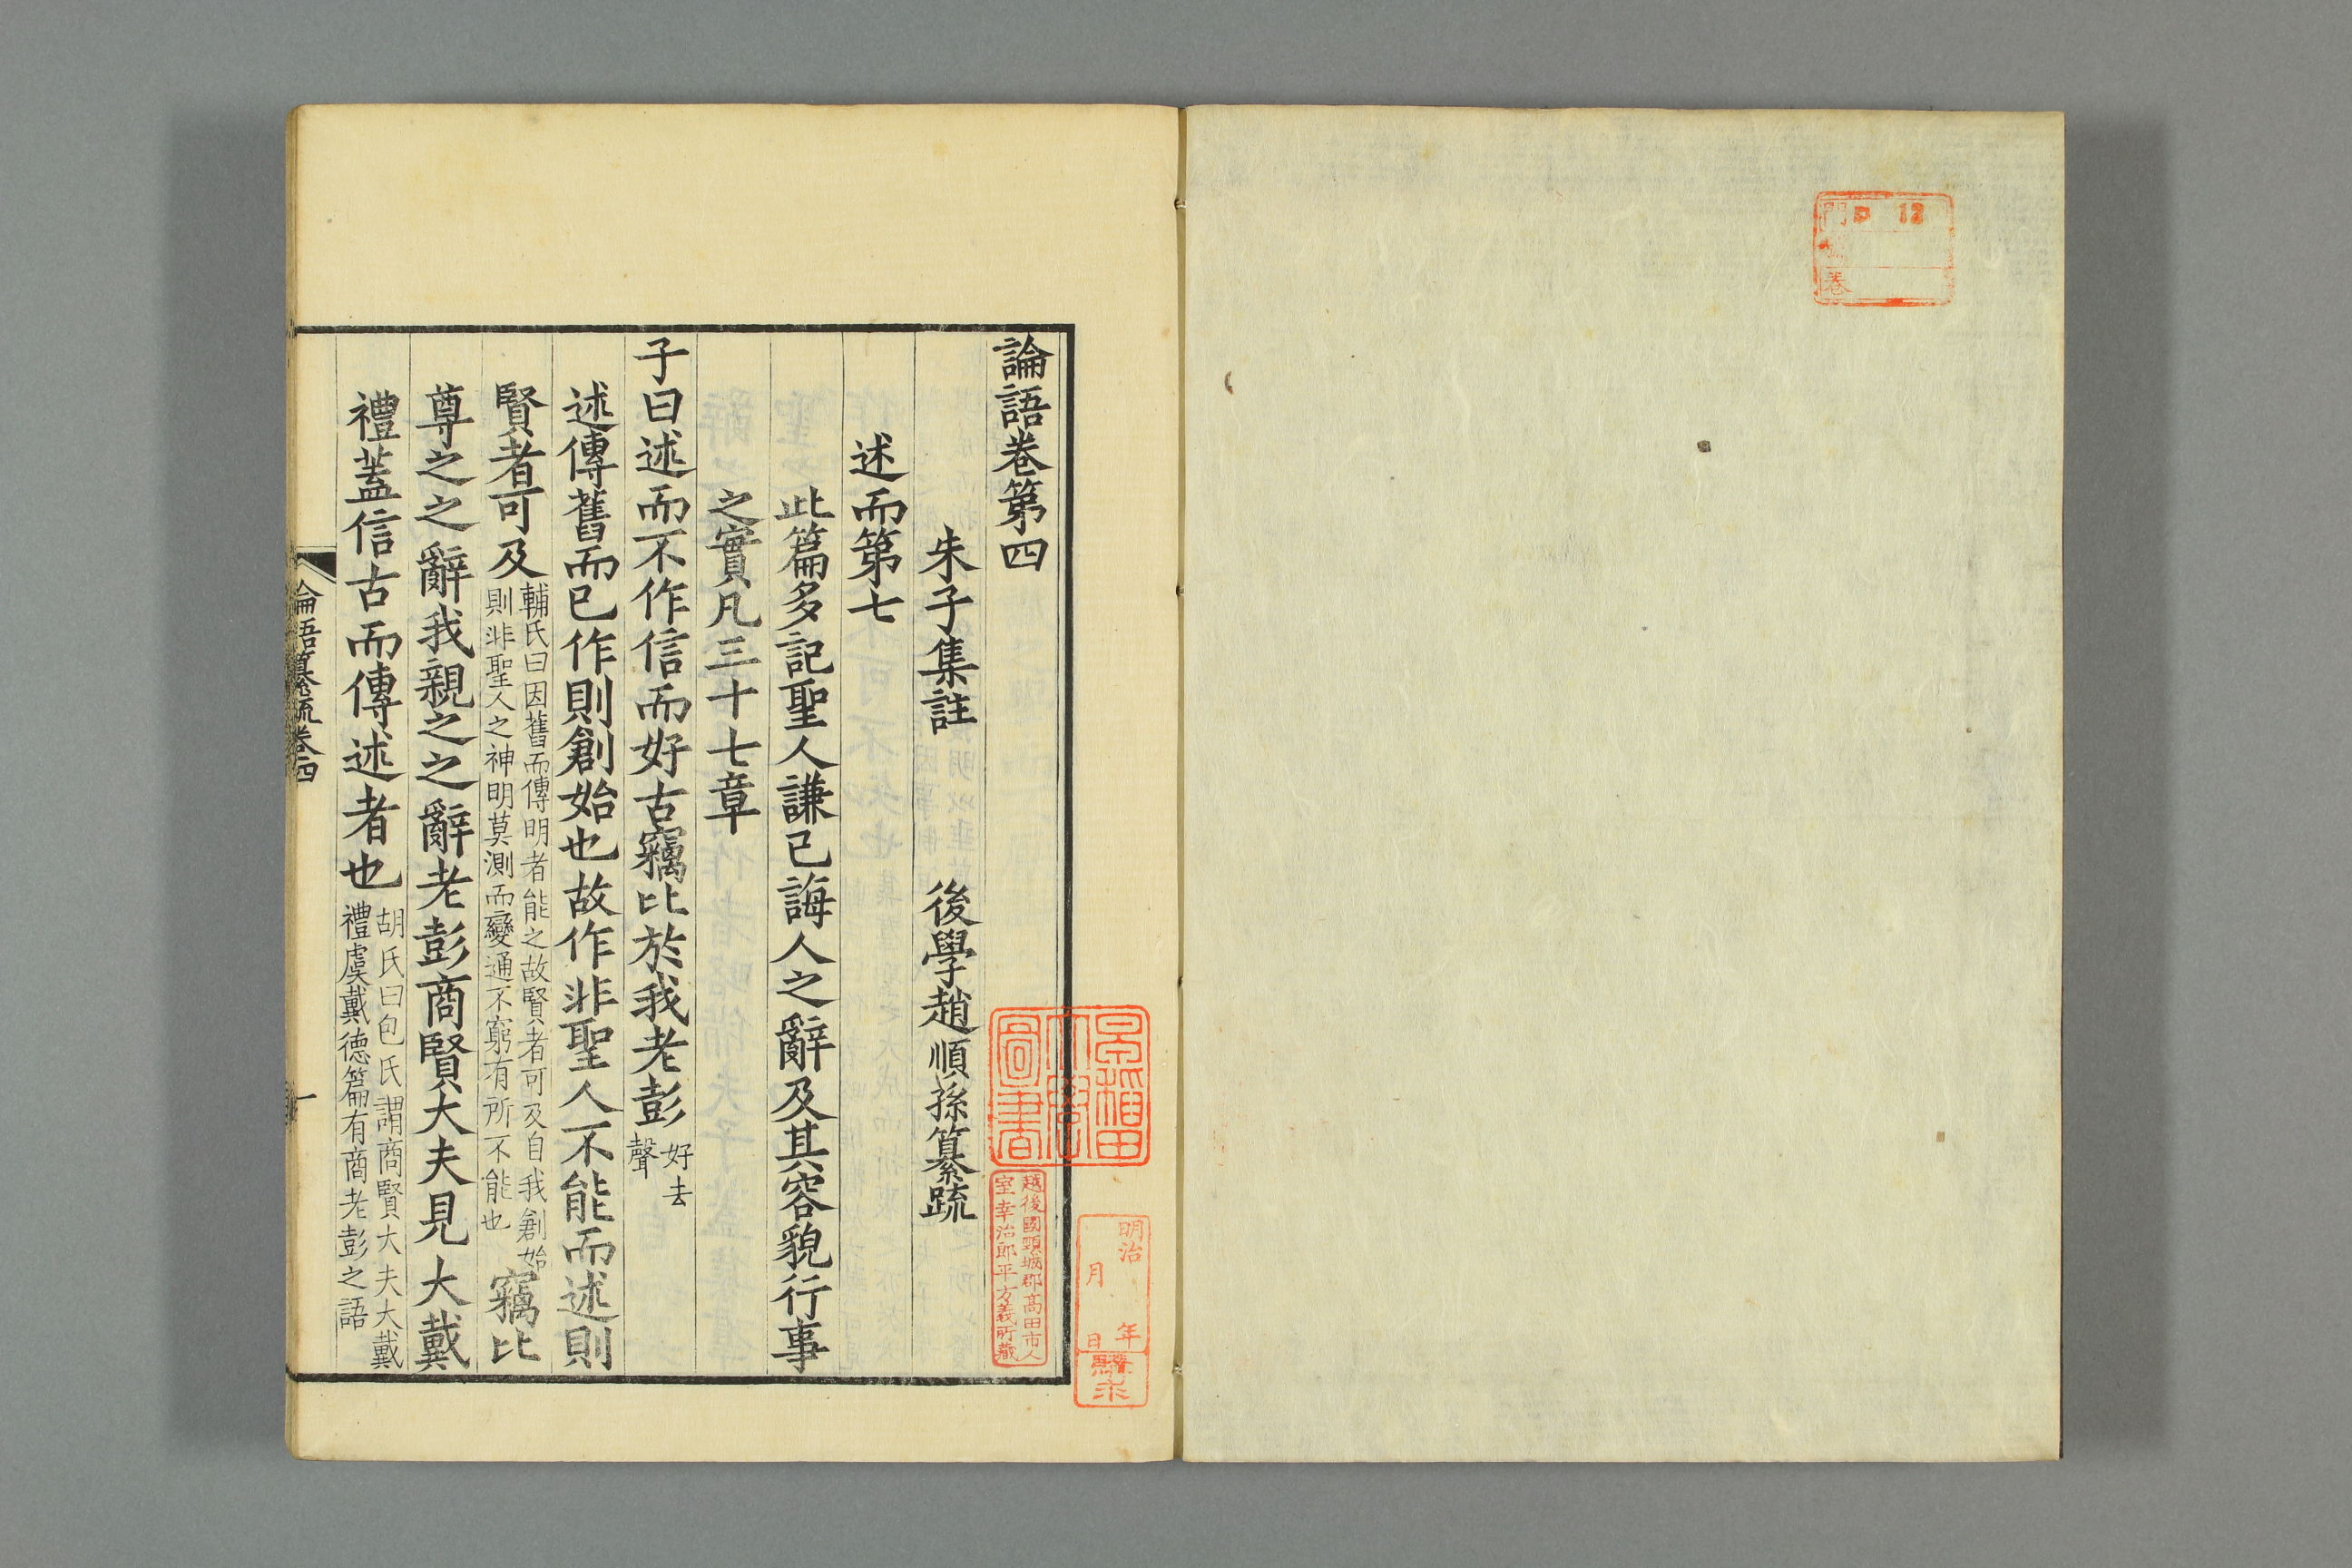 論語卷第四
朱子集註　後學趙順孫纂疏
述而第七
此篇多記聖人謙己誨人之辭及其容貌行事
之實凡三十七章
子曰述而不作信而好古竊比於我老彭
好去
聲
述傳舊而已作則創始也故作非聖人不能而述則
賢者可及
輔氏曰因舊而傳明者能之故賢者可及自我創始
則非聖人之神明莫測而變通不窮有所不能也
竊比
尊之之辭我親之之辭老彭商賢大夫見大戴
禮蓋信古而傳述者也
胡氏曰包氏謂商賢大夫大戴
禮虞戴德篇有商老彭之語
論語纂疏卷四
一
早稲田
大學
圖書
越後國頸城郡髙田市人
室幸治郎平方義所藏
明治　年
月　日
購求
門 ロ 12
號
卷